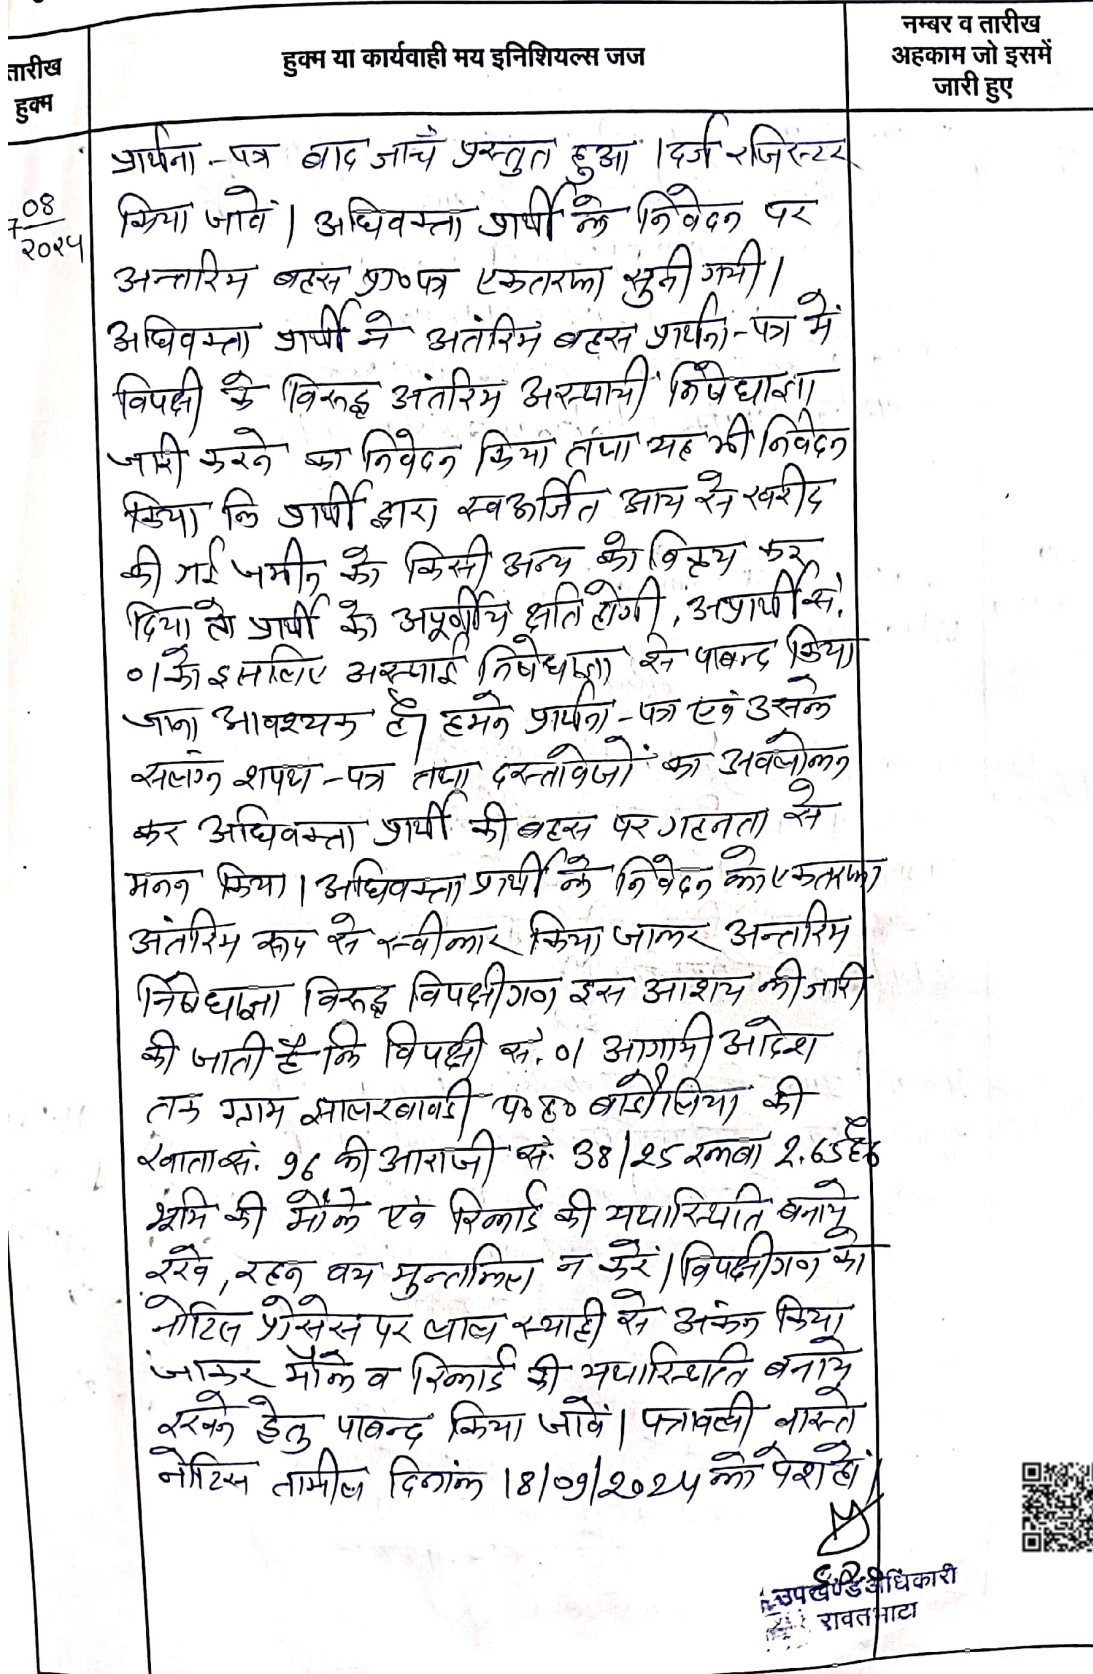 तारीख
हुक्म
हुक्म या कार्यवाही मय इनिशियल्स जज
नम्बर व तारीख
अहकाम जो इसमें
जारी हुए
08
2024
प्रार्थना-पत्र बाद जांच प्रस्तुत हुआ । दर्ज रजिस्टर
किया जावें । अधिवक्ता प्रार्थी के निवेदन पर
अन्तरिम बहस प्रा०पत्र एकतरफा सुनी गयी ।
अधिवक्ता प्रार्थी ने अतंरिम बहस प्रार्थना-पत्र में
विपक्षी के विरूद्ध अंतरिम अस्थायी निषेधाज्ञा
जारी करने का निवेदन किया तथा यह भी निवेदन
किया कि प्रार्थी द्वारा स्वअर्जित आय से खरीद
की गई जमीन को किसी अन्य को विक्रय कर
दिया तो प्रार्थी को अपूर्णीय क्षति होगी, अप्रार्थी सं.
01 को इसलिए अस्थाई निषेधाज्ञा से पाबन्द किया
जाना आवश्यक है। हमने प्रार्थना-पत्र एवं उसके
सलंग्न शपथ-पत्र तथा दस्तावेजों का अवलोकन
कर अधिवक्ता प्रार्थी की बहस पर गहनता से
मनन किया । अधिवक्ता प्रार्थी के निवेदन को एकतरफा
अंतरिम रूप से स्वीकार किया जाकर अन्तरिम
निषेधाज्ञा विरूद्ध विपक्षीगण इस आशय की जारी
की जाती है कि विपक्षी सं. 01 आगामी आदेश
तक ग्राम सालरबावडी प०ह० बाडौलिया की
खाता सं. 96 की आराजी सं. 38/25 रकबा 2.65 है०
भूमि की मौके एवं रिकार्ड की यथास्थिति बनाये
रखे, रहन बय मुन्तकिल न करें । विपक्षीगण को
नोटिस प्रोसेस पर लाल स्याही से अंकन किया
जाकर मौके व रिकार्ड की यथास्थिति बनाये
रखने हेतु पाबन्द किया जावें । पत्रावली वास्ते
नोटिस तामील दिनांक 18/09/2024 को पेश हो।
उपखण्ड अधिकारी
रावतभाटा